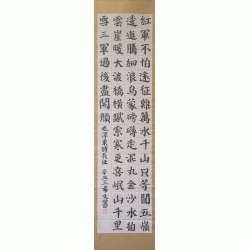 紅軍不怕遠征難萬水千山只等閒五嶺
逶迤騰細浪烏蒙磅礴走泥丸金沙水拍
雲崖暖大渡橋橫鐵索寒更喜岷山千里
雪三軍過後盡開顏 毛澤東詩長征